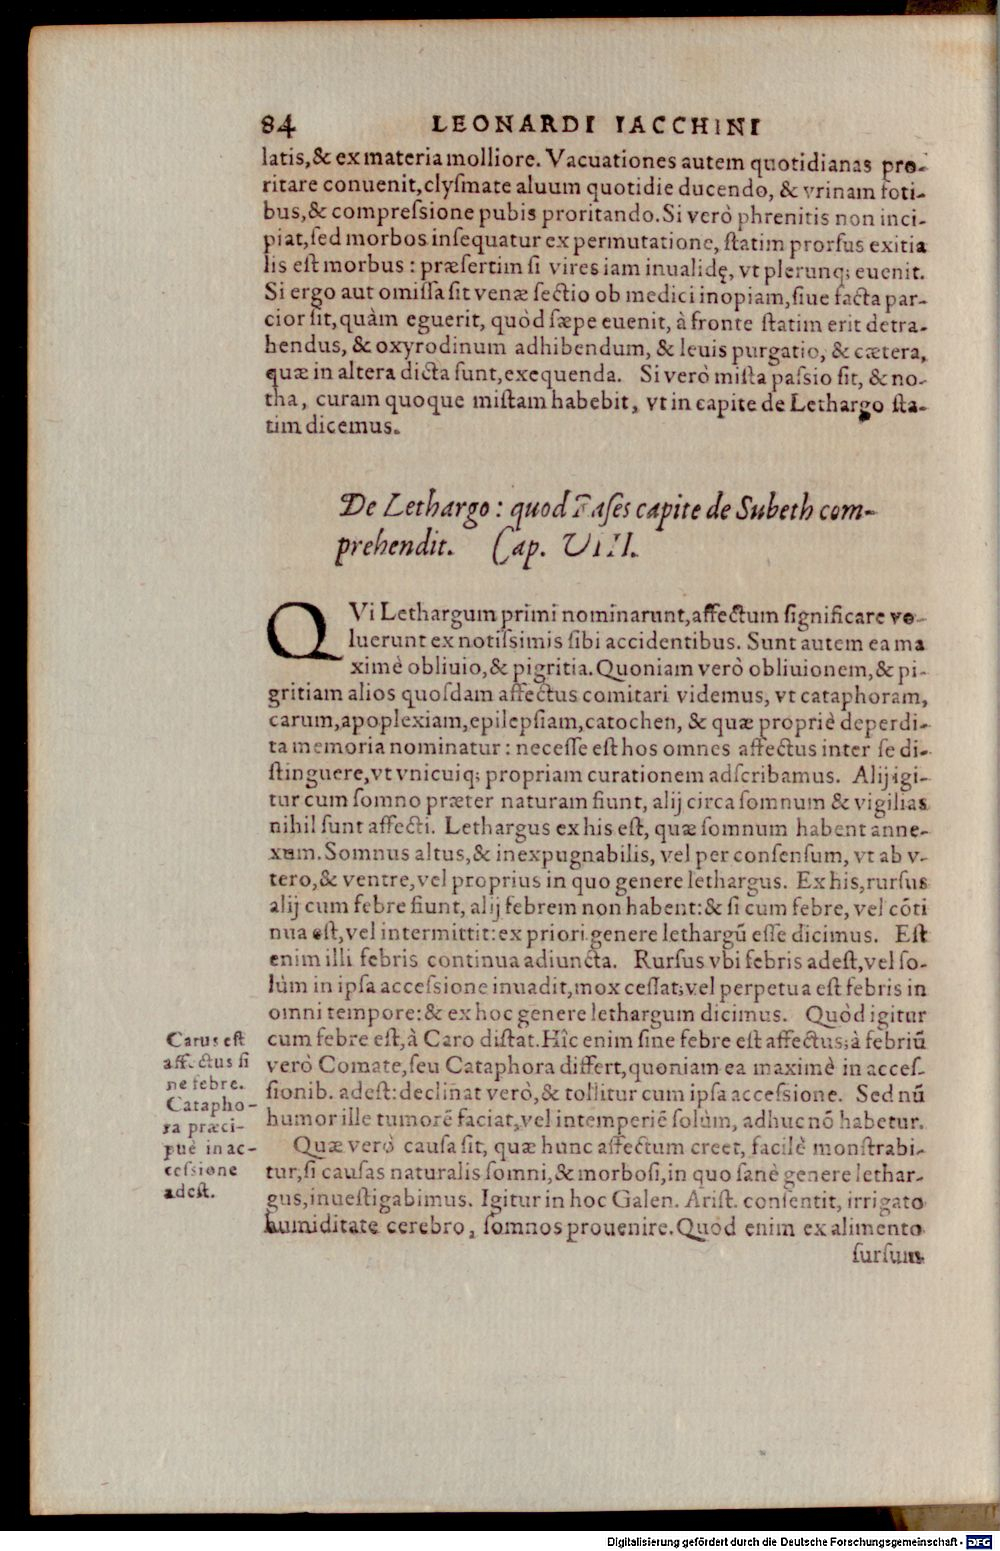 84 LEONARDI IACCHINI
latis,& ex materia molliore. Vacuationes autem quotidianas pro-
ritare conuenit,clyſmate aluum quotidie ducendo, & vrinam foti-
bus,& compreſsione pubis proritando. Si verò phrenitis non inci-
piat,ſed morbos inſequatur ex permutatione, ſtatim prorſus exitia
lis eſt morbus : præſertim ſi vires iam inualidę, vt plerunq; euenit.
Si ergo aut omiſſa ſit venæ ſectio ob medici inopiam,ſiue facta par-
cior ſit,quàm eguerit, quòd ſæpe euenit, à fronte ſtatim erit detra-
hendus, & oxyrodinum adhibendum, & leuis purgatio, & cætera,
quæ in altera dicta ſunt,exequenda. Si verò miſta paſsio ſit, & no-
tha, curam quoque miſtam habebit, vt in capite de Lethargo ſta-
tim dicemus.
De Lethargo : quod Raſes capite de Subeth com-
prehendit. Cap. VIII.
QVi Lethargum primi nominarunt,affectum ſignificare vo-
luerunt ex notiſsimis ſibi accidentibus. Sunt autem ea ma
ximè obliuio,& pigritia. Quoniam verò obliuionem,& pi-
gritiam alios quoſdam affectus comitari videmus, vt cataphoram,
carum,apoplexiam,epilepſiam,catochen, & quæ propriè deperdi-
ta memoria nominatur : neceſſe eſt hos omnes affectus inter ſe di-
ſtinguere,vt vnicuiq; propriam curationem adſcribamus. Alij igi-
tur cum ſomno præter naturam fiunt, alij circa ſomnum & vigilias
nihil ſunt affecti. Lethargus ex his eſt, quæ ſomnum habent anne-
xum. Somnus altus,& inexpugnabilis, vel per conſenſum, vt ab v-
tero,& ventre,vel proprius in quo genere lethargus. Ex his,rurſus
alij cum febre fiunt, alij febrem non habent:& ſi cum febre, vel cōti
nua eſt,vel intermittit:ex priori genere lethargū eſſe dicimus. Eſt
enim illi febris continua adiuncta. Rurſus vbi febris adeſt,vel ſo-
lùm in ipſa acceſsione inuadit,mox ceſſat;vel perpetua eſt febris in
omni tempore:& ex hoc genere lethargum dicimus. Quòd igitur
cum febre eſt,à Caro diſtat. Hîc enim ſine febre eſt affectus;à febriū
verò Comate,ſeu Cataphora differt,quoniam ea maximè in acceſ-
ſionib. adeſt:declinat verò,& tollitur cum ipſa acceſsione. Sed nū
humor ille tumorē faciat,vel intemperiē ſolùm, adhuc nō habetur.
Quæ verò cauſa ſit, quæ hunc affectum creet, facilè monſtrabi-
tur,ſi cauſas naturalis ſomni,& morboſi,in quo ſanè genere lethar-
gus,inueſtigabimus. Igitur in hoc Galen. Ariſt. conſentit, irrigato
humiditate cerebro, ſomnos prouenire. Quòd enim ex alimento
ſurſum
Carus eſt
affectus ſi
ne febre.
Catapho-
ra præci-
puè in ac-
ceſsione
adeſt.
Digitalisierung gefördert durch die Deutsche Forschungsgemeinschaft - DFG